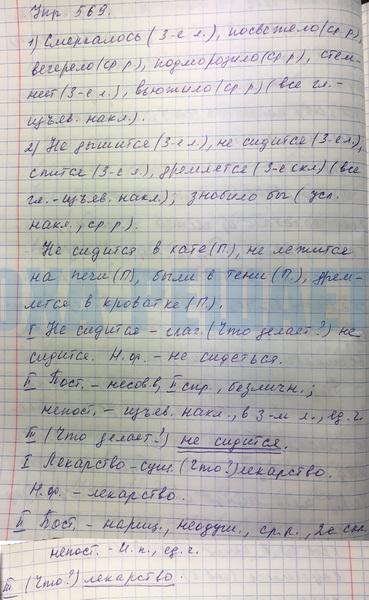 Упр 569.
1) Смеркалось (3-е л.), посветлело (ср.р),
вечерело (ср.р), подморозило (ср.р), стем-
неет (3-е л.), вьюжило (ср.р) (все гл.-
изъяв. накл.).
2) Не дышится (3-е л), не сидится (3-е л),
спится (3-е л.), дремлется (3-е скл) (все
гл.-изъяв. накл); знобило бы (усл.
накл., ср.р).
Не сидится в хате (П.), не лежится
на печи (П), были в тени (П.), дрем-
лется в кроватке (П).
I Не сидится - глаг. (Что делает?) не
сидится. Н.ф. - не сидеться.
II Пост. - несов.в, II спр, безличн.;
непост. - изъяв. накл., в 3-м л., ед.ч.
III (Что делает?) не сидится.
I Лекарство - сущ. (Что?) лекарство.
Н.ф. - лекарство.
II Пост. - нариц., неодуш., ср.р., 2е скл
непост. - И.п., ед.ч.
III (Что?) лекарство.